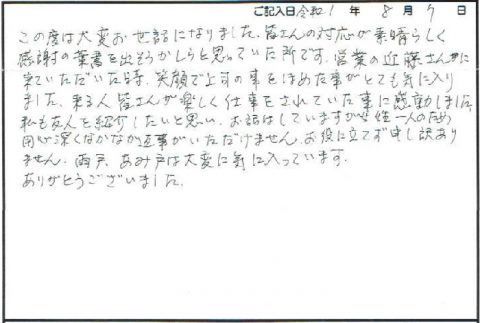 ご記入日 令和1年8月7日
この度は大変お世話になりました。皆さんの対応が素晴らしく
感謝の葉書を出そうかしらと思っていた所です。営業の近藤さんが
来ていただいた時、笑顔で上司の事をほめた事がとても気に入り
ました。来る人皆さんが楽しく仕事をされていた事に感動しました。
私も友人を紹介したいと思い、お話はしていますが女性一人のため
用心深くなかなか返事がいただけません。お役に立てず申し訳あり
ません。雨戸、あみ戸は大変に気に入っています。
ありがとうございました。